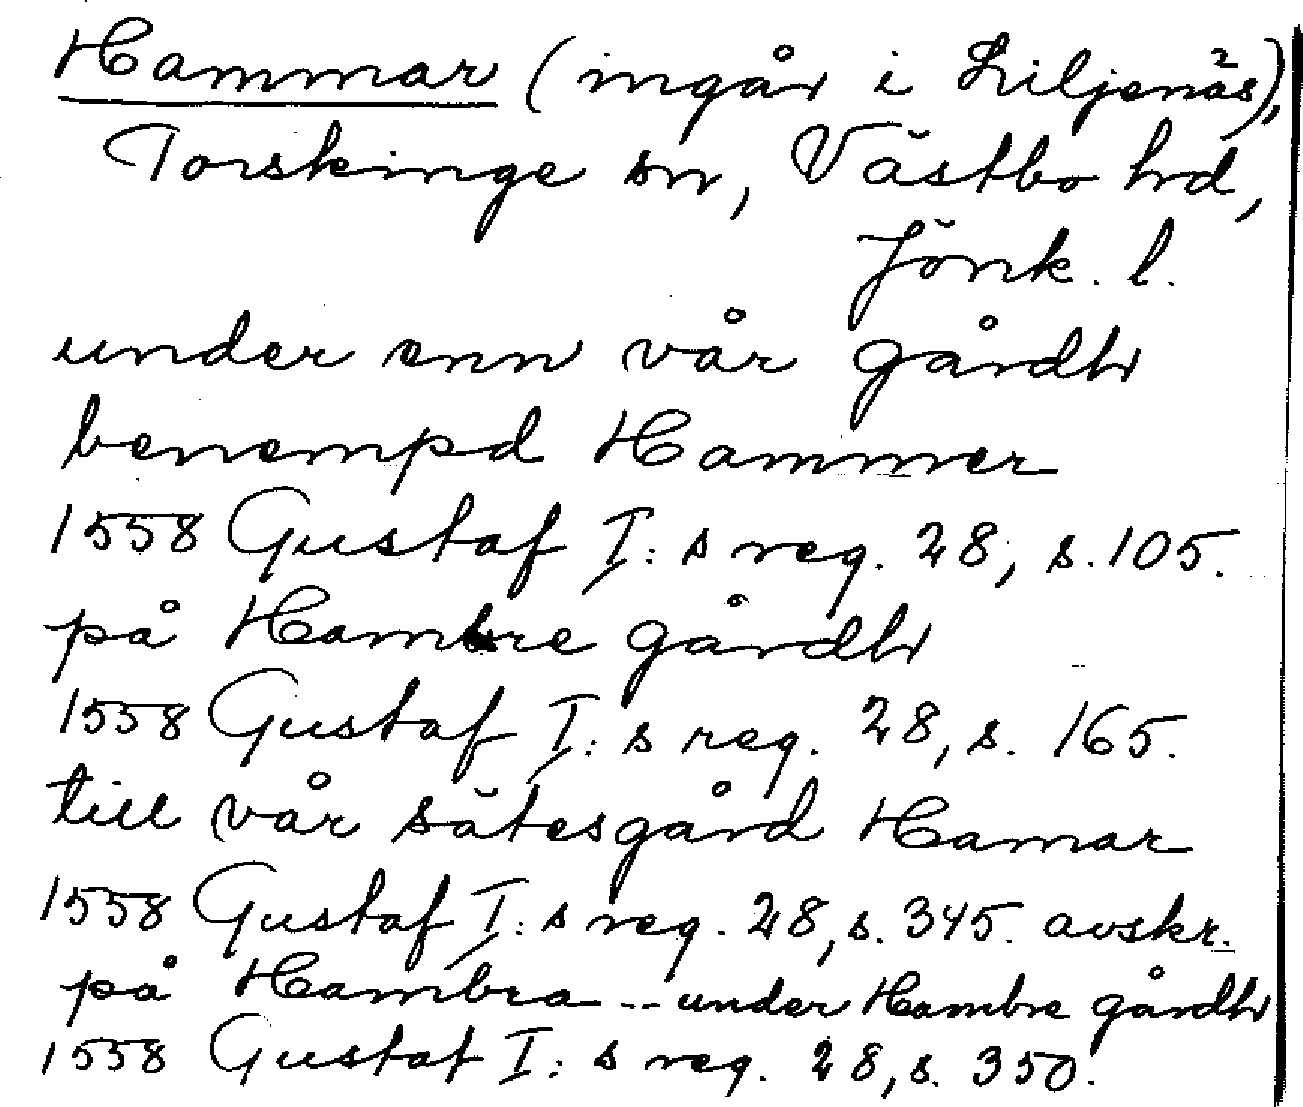 Hammar (ingår i Liljenäs),
Torskinge sn, Västbo hd,
Jönk. l.
under enn vår gårdh
benempd Hammer
1558 Gustaf I:s reg. 28, s. 105.
på Hambre gårdh
1558 Gustaf I:s reg. 28, s. 165.
till vår sätesgård Hamar
1558 Gustaf I:s reg. 28, s. 345. avskr.
på Hambra -- under Hambre gårdh
1558 Gustaf I:s reg. 28, s. 350.